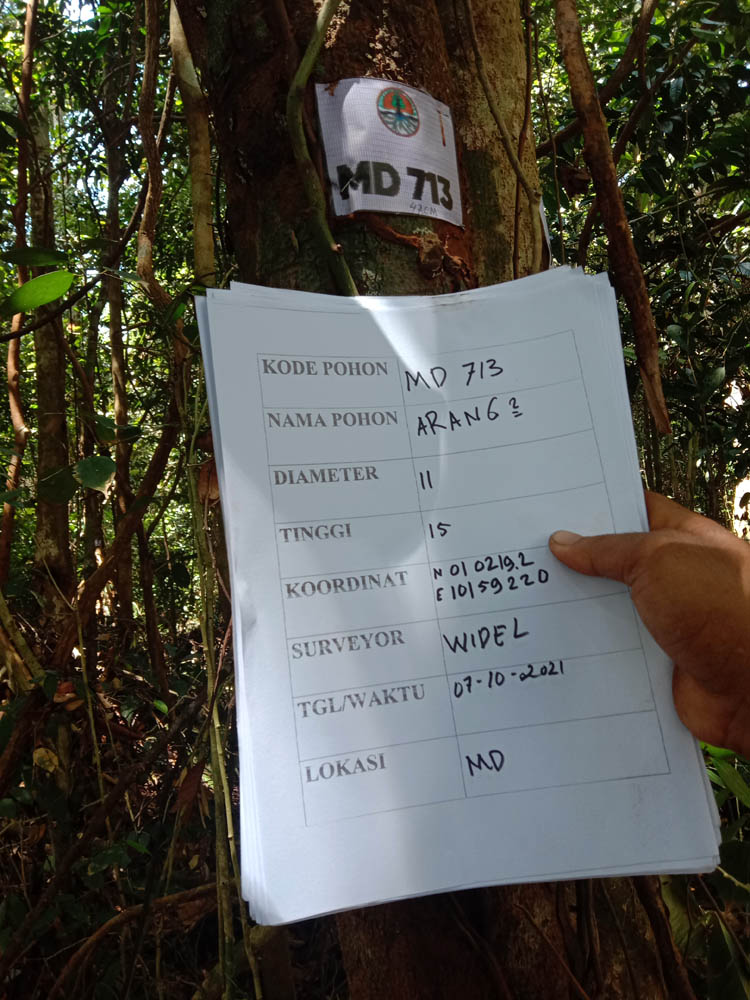 MD 713
KODE POHON MD 713
NAMA POHON ARANG 2
DIAMETER 11
TINGGI 15
KOORDINAT N 01 0219.2
E 10159220
SURVEYOR WIDEL
TGL/WAKTU 07-10-2021
LOKASI MD